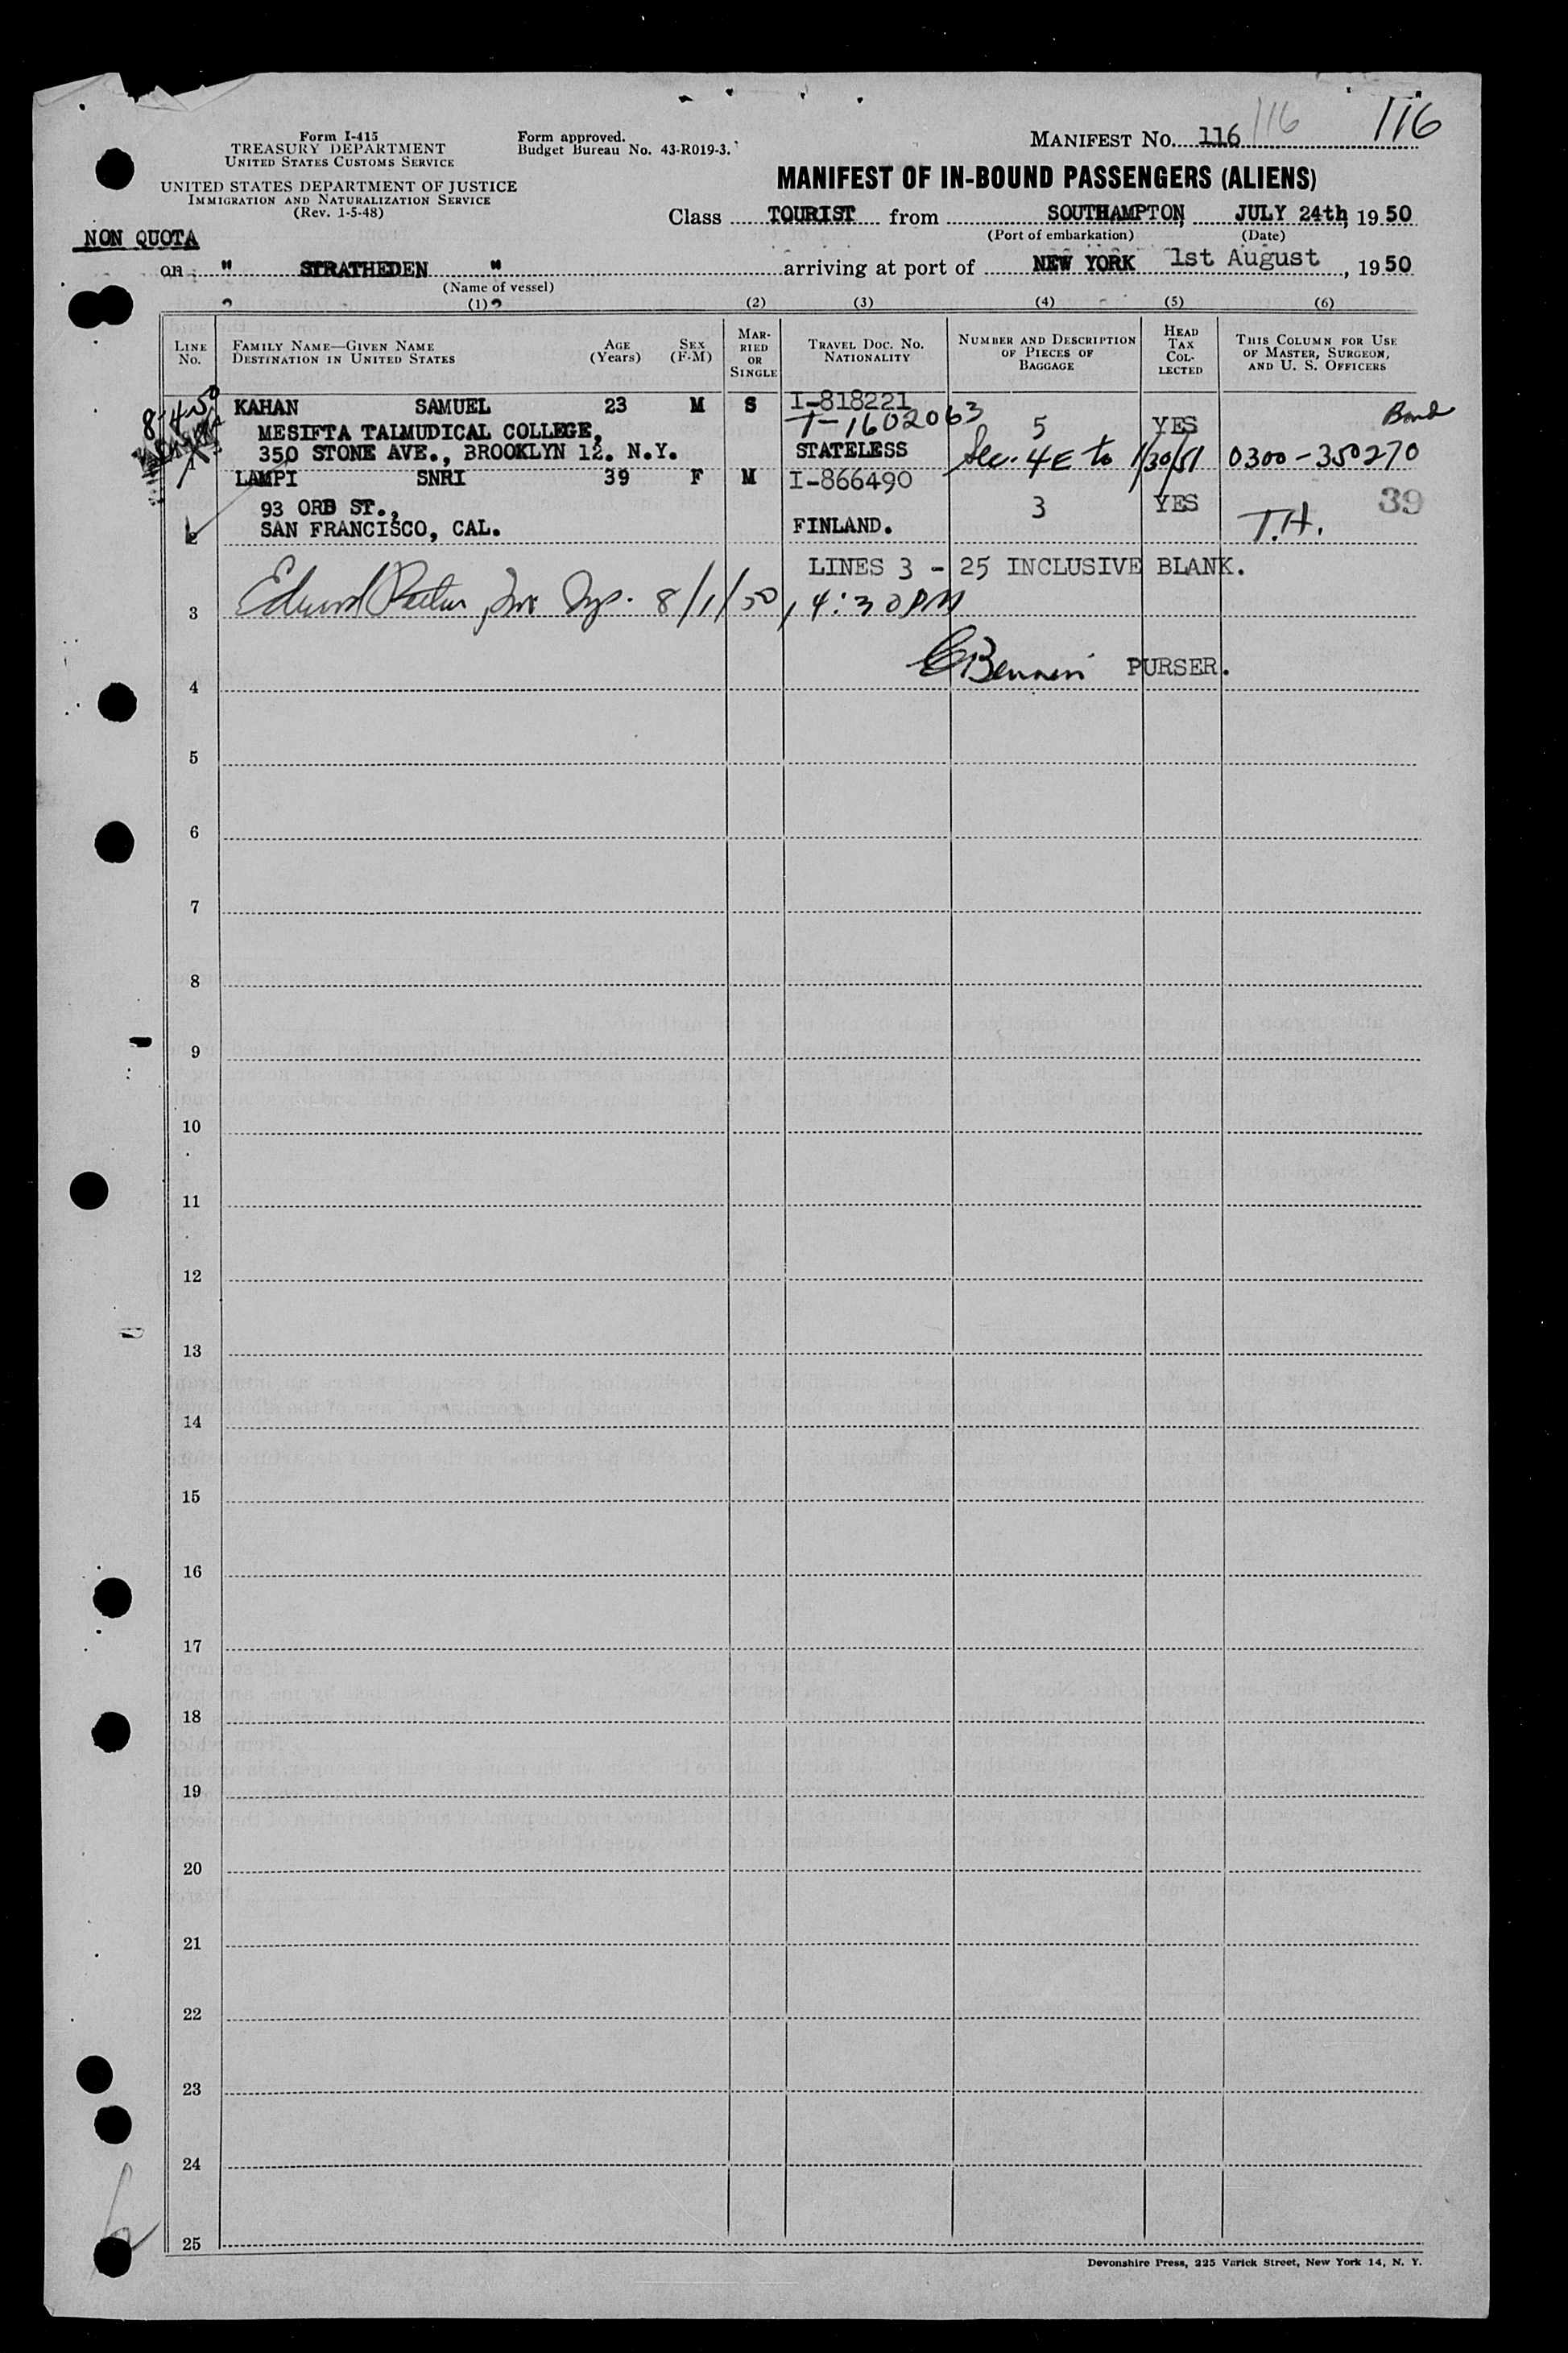 116
116
Form I-415
TREASURY DEPARTMENT
UNITED STATES CUSTOMS SERVICE
Form approved.
Budget Bureau No. 43-R019-3.
MANIFEST NO. 116
UNITED STATES DEPARTMENT OF JUSTICE
IMMIGRATION AND NATURALIZATION SERVICE
(Rev. 1-5-48)
MANIFEST OF IN-BOUND PASSENGERS (ALIENS)
Class TOURIST from SOUTHAMPTON, JULY 24th, 1950
(Port of embarkation) (Date)
NON QUOTA
on " STRATHEDEN " arriving at port of NEW YORK 1st August, 1950
(Name of vessel)
(1) (2) (3) (4) (5) (6)
LINE NO.
FAMILY NAME—GIVEN NAME
DESTINATION IN UNITED STATES
AGE (Years)
SEX (F-M)
MARRIED OR SINGLE
TRAVEL DOC. NO.
NATIONALITY
NUMBER AND DESCRIPTION OF PIECES OF BAGGAGE
HEAD TAX COLLECTED
THIS COLUMN FOR USE OF MASTER, SURGEON, AND U. S. OFFICERS
8-4-50
KAHAN SAMUEL 23 M S I-818221
T-1602063 5 YES Bond
MESIFTA TALMUDICAL COLLEGE,
350 STONE AVE., BROOKLYN 12. N.Y. STATELESS Sec. 4E to 1/30/51 0300-350270
LAMPI SNRI 39 F M I-866490
93 ORD ST., 3 YES 39
SAN FRANCISCO, CAL. FINLAND. T.H.
LINES 3 - 25 INCLUSIVE BLANK.
3 Edward 8/1/50, 4:30 PM
PURSER.
4
5
6
7
8
9
10
11
12
13
14
15
16
17
18
19
20
21
22
23
24
25
Devonshire Press, 225 Varick Street, New York 14, N. Y.